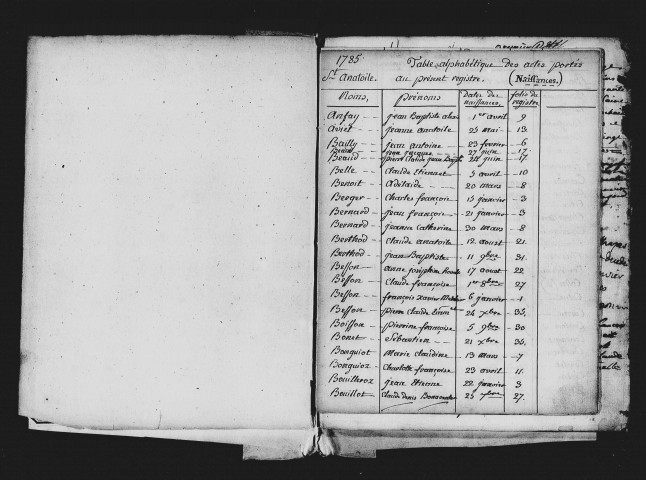 1785 Table alphabétique des actes portés
St. Anatoile. au présent registre. (Naissances.)
Noms, Prénoms dates des naissances. folio du registre
Anfay jean Baptiste 1er avril 9
Aviet jeanne anatoile 25 mai 13
Bailly jean antoine 23 fevrier 6
jean jacques 27 juin 17
Beaud pierre Claude jean Bapte juin 17
Belle Claude Etienne 3 avril 10
Benoit Adélaide 20 mars 8
Berger Charles françois 15 janvier 3
Bernard jean françois 21 janvier 3
Bernard jeanne Catherine 30 mars 8
Berthod Claude anatoile 12 aoust 21
Berthod jean Baptiste 11 9bre 31
Besson anne joséphine 17 aoust 22
Besson Claude françoise 1er 8bre 27
Besson françois Xavier 6 janvier 1
Besson pierre Claude 24 xbre 35
Boisson pierrine françoise 5 9bre 30
Bonet Sébastien 21 xbre 35
Bonguiot Marie Claudine 13 mars 7
Bonguiot Charlotte françoise 23 avril 11
Bouilleroz jean Etienne 22 janvier 3
Bouillet Claude denis 25 7bre 27